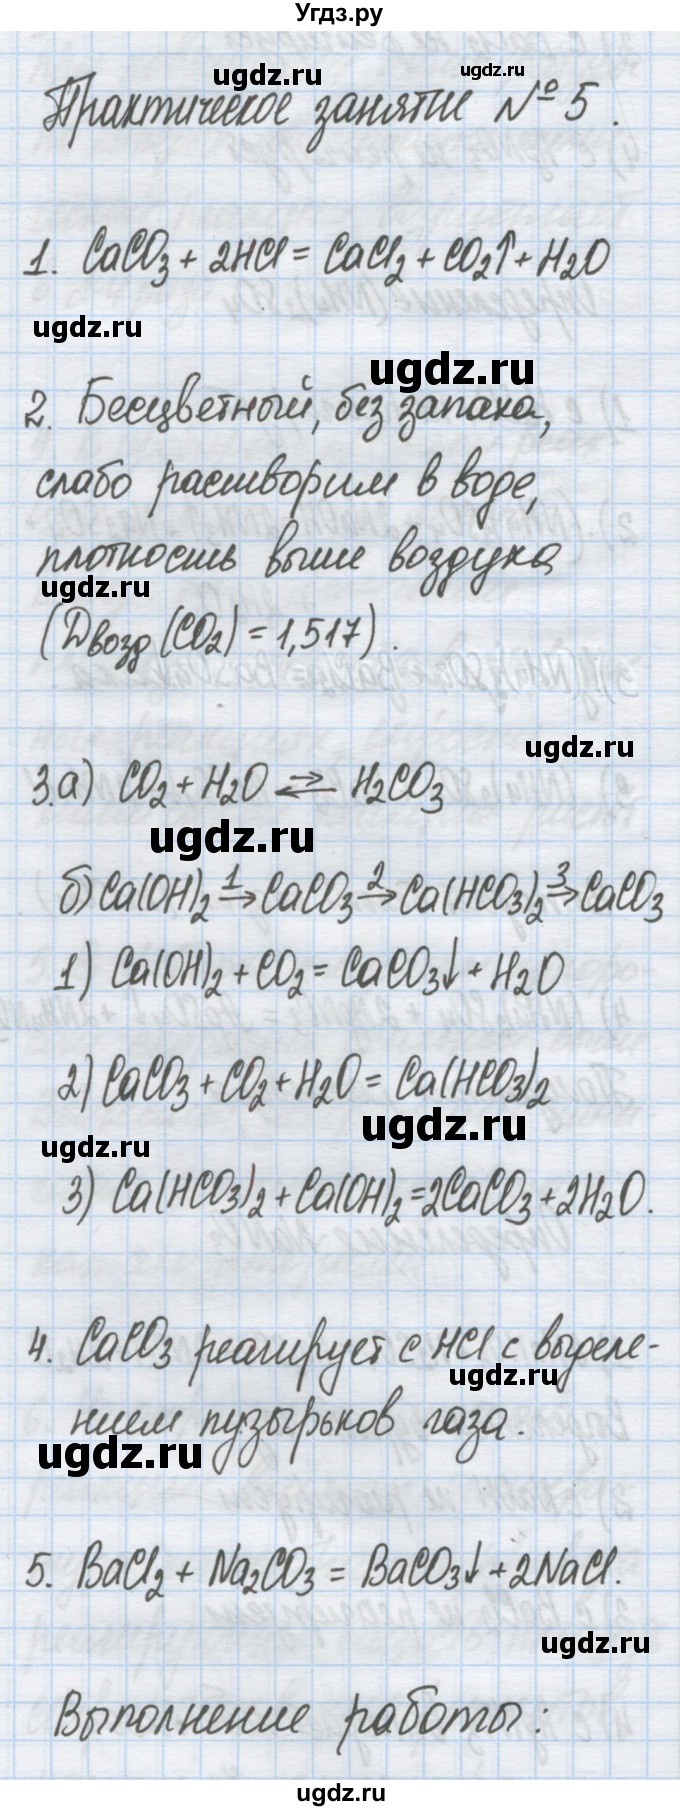 Угдз.ру
ugdz.ru ugdz.ru
Практическое занятие № 5.
1. CaCO3 + 2HCl = CaCl2 + CO2↑ + H2O
ugdz.ru
ugdz.ru
2. Бесцветный, без запаха,
слабо растворим в воде,
плотность выше воздуха
ugdz.ru
(Dвозд (CO2) = 1,517).
ugdz.ru
3.а) CO2 + H2O ⇄ H2CO3
ugdz.ru
б) Ca(OH)2 →1 CaCO3 →2 Ca(HCO3)2 →3 CaCO3
1) Ca(OH)2 + CO2 = CaCO3↓ + H2O
2) CaCO3 + CO2 + H2O = Ca(HCO3)2
ugdz.ru
ugdz.ru
3) Ca(HCO3)2 + Ca(OH)2 = 2CaCO3 + 2H2O.
4. CaCO3 реагирует с HCl с выделе-
ugdz.ru
нием пузырьков газа.
ugdz.ru
5. BaCl2 + Na2CO3 = BaCO3↓ + 2NaCl.
ugdz.ru
Выполнение работы:
ugdz.ru